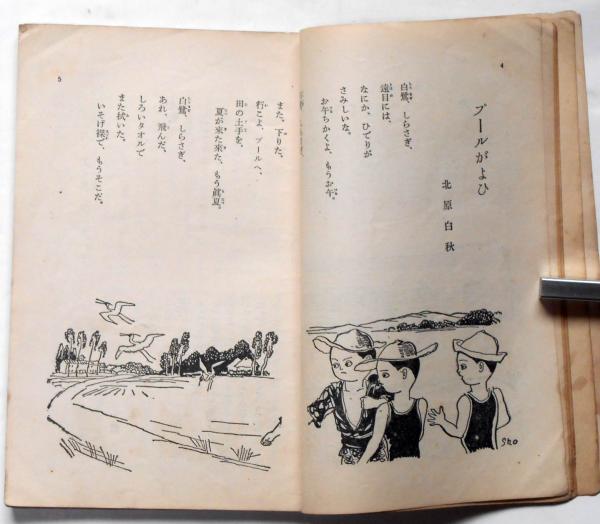 4
プールがよひ
北原白秋
白鷺、しらさぎ、
遠目には、
なにか、ひでりが
さみしいな。
お午ちかくよ、もうお午。
また、下りた。
行こよ、プールへ、
田の土手を、
夏が来た来た、もう眞夏。
白鷺、しらさぎ、
あれ、飛んだ、
しろいタオルで
また拭いた。
いそげ裸で、もうそこだ。
5
SHO